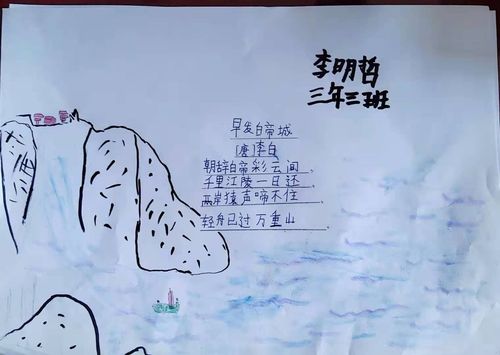 李明哲
三年三班
早发白帝城
[唐]李白
朝辞白帝彩云间，
千里江陵一日还。
两岸猿声啼不住
轻舟已过万重山。